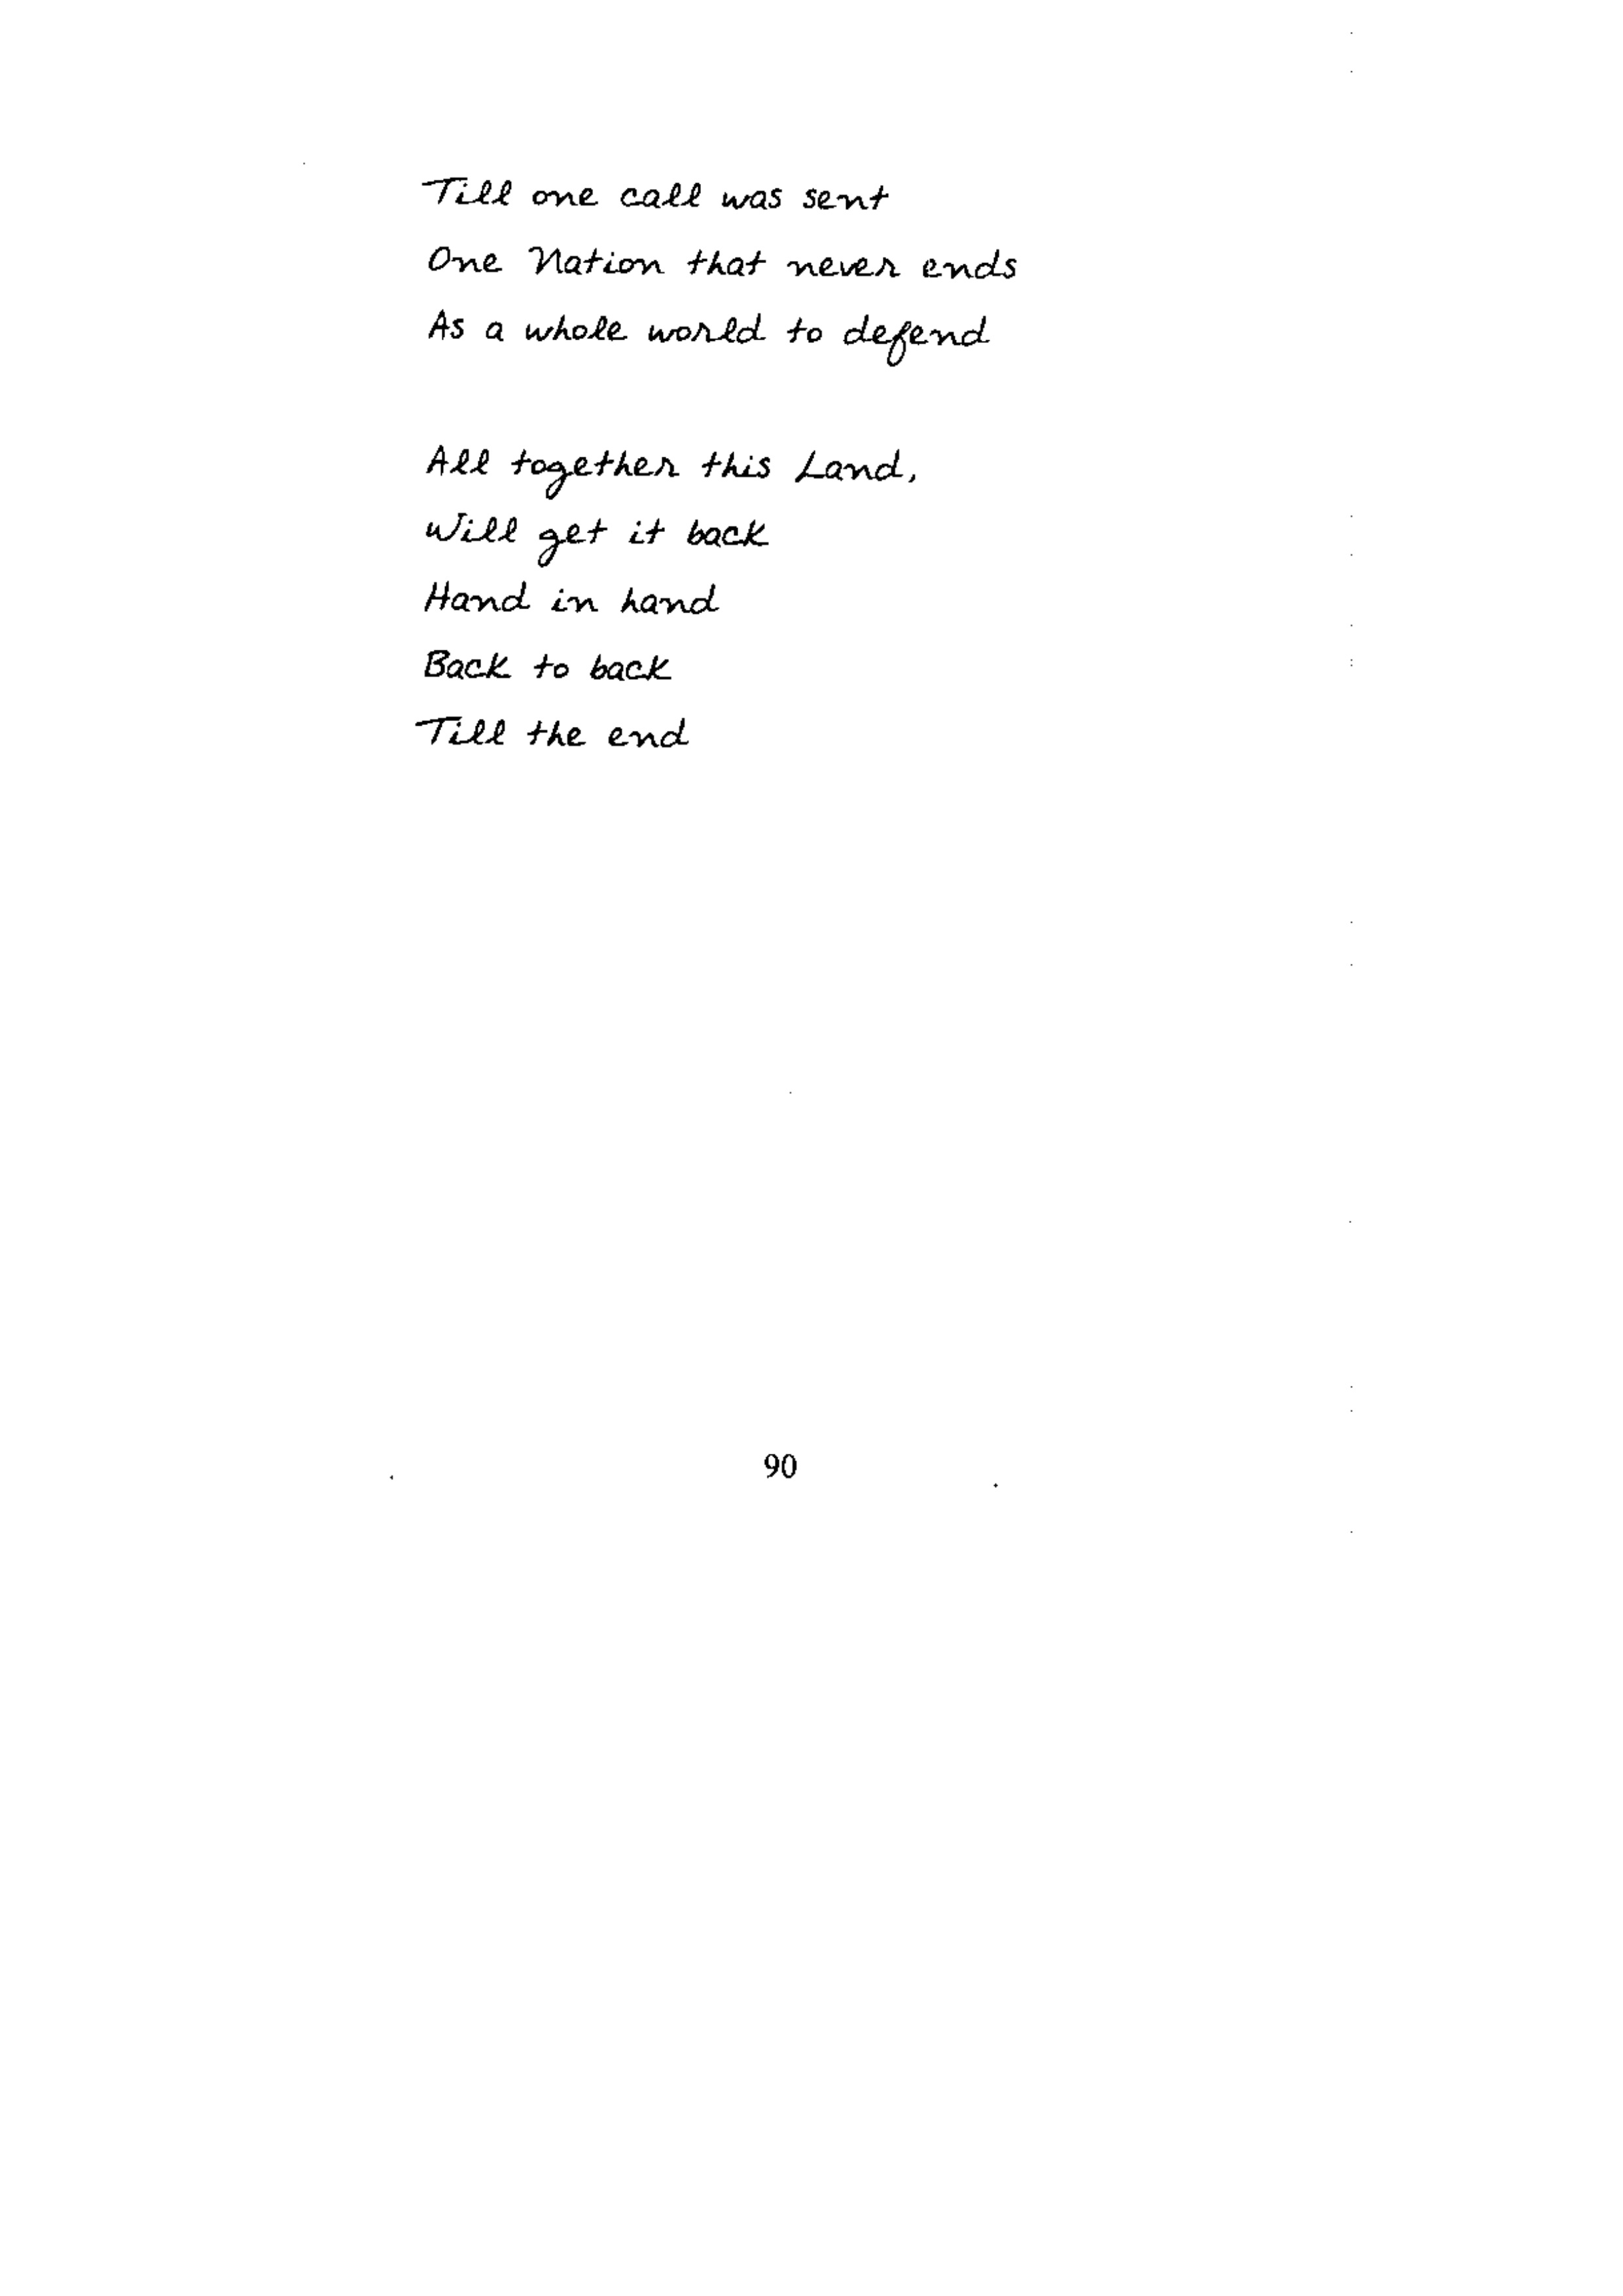 Till one call was sent
One Nation that never ends
As a whole world to defend
All together this Land,
Will get it back
Hand in hand
Back to back
Till the end
90